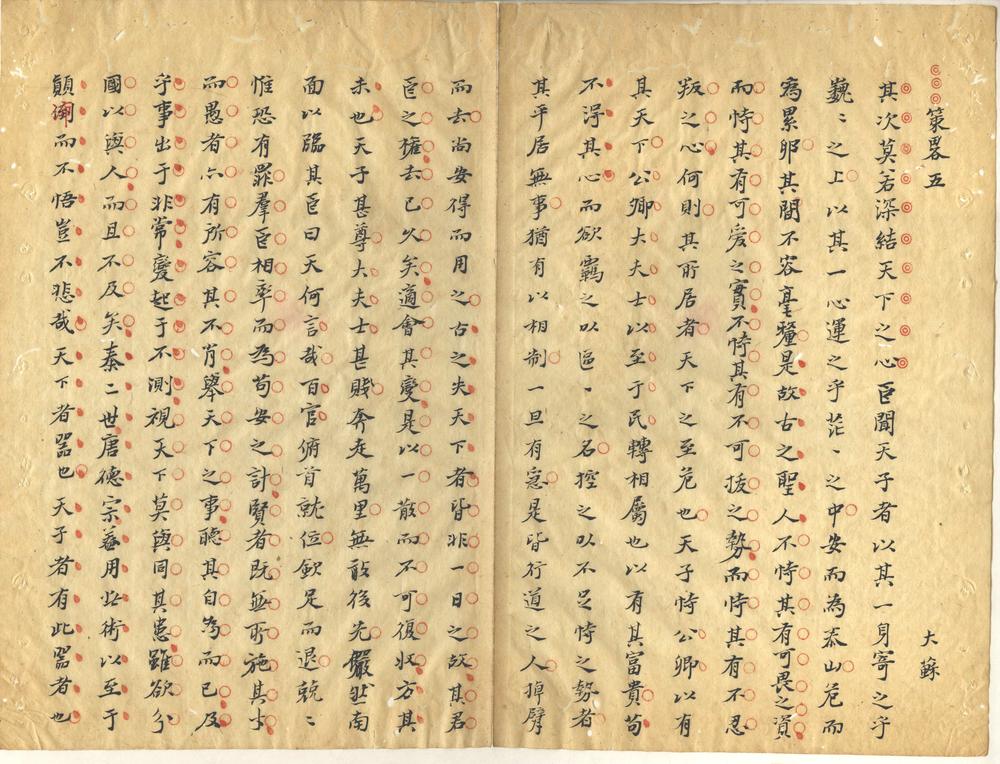 策畧五 大蘇
其次莫若深結天下之心臣聞天子者以其一身寄之乎
巍〻之上以其一心運之乎茫〻之中安而為泰山危而
為累卵其間不容毫釐是故古之聖人不恃其有可畏之資
而恃其有可爱之實不恃其有不可拔之勢而恃其有不忍
叛之心何則其所居者天下之至危也天子恃公卿以有
其天下公卿大夫士以至于民轉相屬也以有其富貴苟
不得其心而欲羈之以區〻之名控之以不足恃之勢者
其平居無事猶有以相制一旦有急是皆行道之人掉臂
而去尚安得而用之古之失天下者皆非一日之故其君
臣之權去已久矣適會其變是以一散而不可復收方其
未也天子甚尊大夫士甚賤奔走萬里無敢後先儼然南
面以臨其臣曰天何言哉百官俯首就位歛足而退兢〻
惟恐有罪羣臣相率而為苟安之計賢者既無所施其才
而愚者亦有所容其不肖舉天下之事聽其自為而已及
乎事出于非常變起于不測視天下莫與同其患雖欲分
國以與人而且不及矣秦二世唐德宗蓋用此術以至于
顛而不悟豈不悲哉天下者器也天子者有此器者也